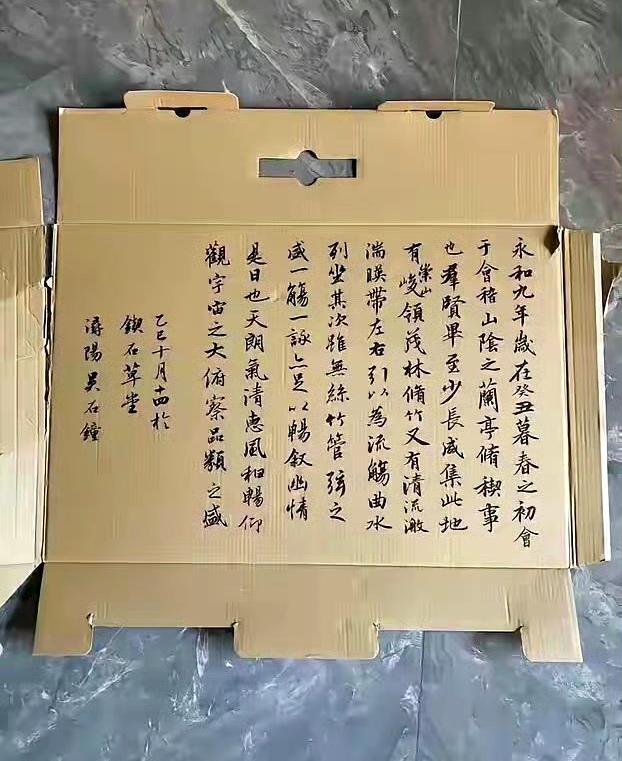 永和九年歲在癸丑暮春之初會
于會稽山陰之蘭亭脩稧事
也羣賢畢至少長咸集此地
有崇山峻領茂林脩竹又有清流激
湍暎帶左右引以為流觴曲水
列坐其次雖無絲竹管弦之
盛一觴一詠亦足以暢叙幽情
是日也天朗氣清惠風和暢仰
觀宇宙之大俯察品類之盛
乙巳十月十四於
鍥石草堂
潯陽吳石鐘